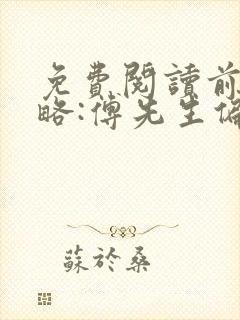 免費閱讀前
略:傅先生偏
蘇於桑